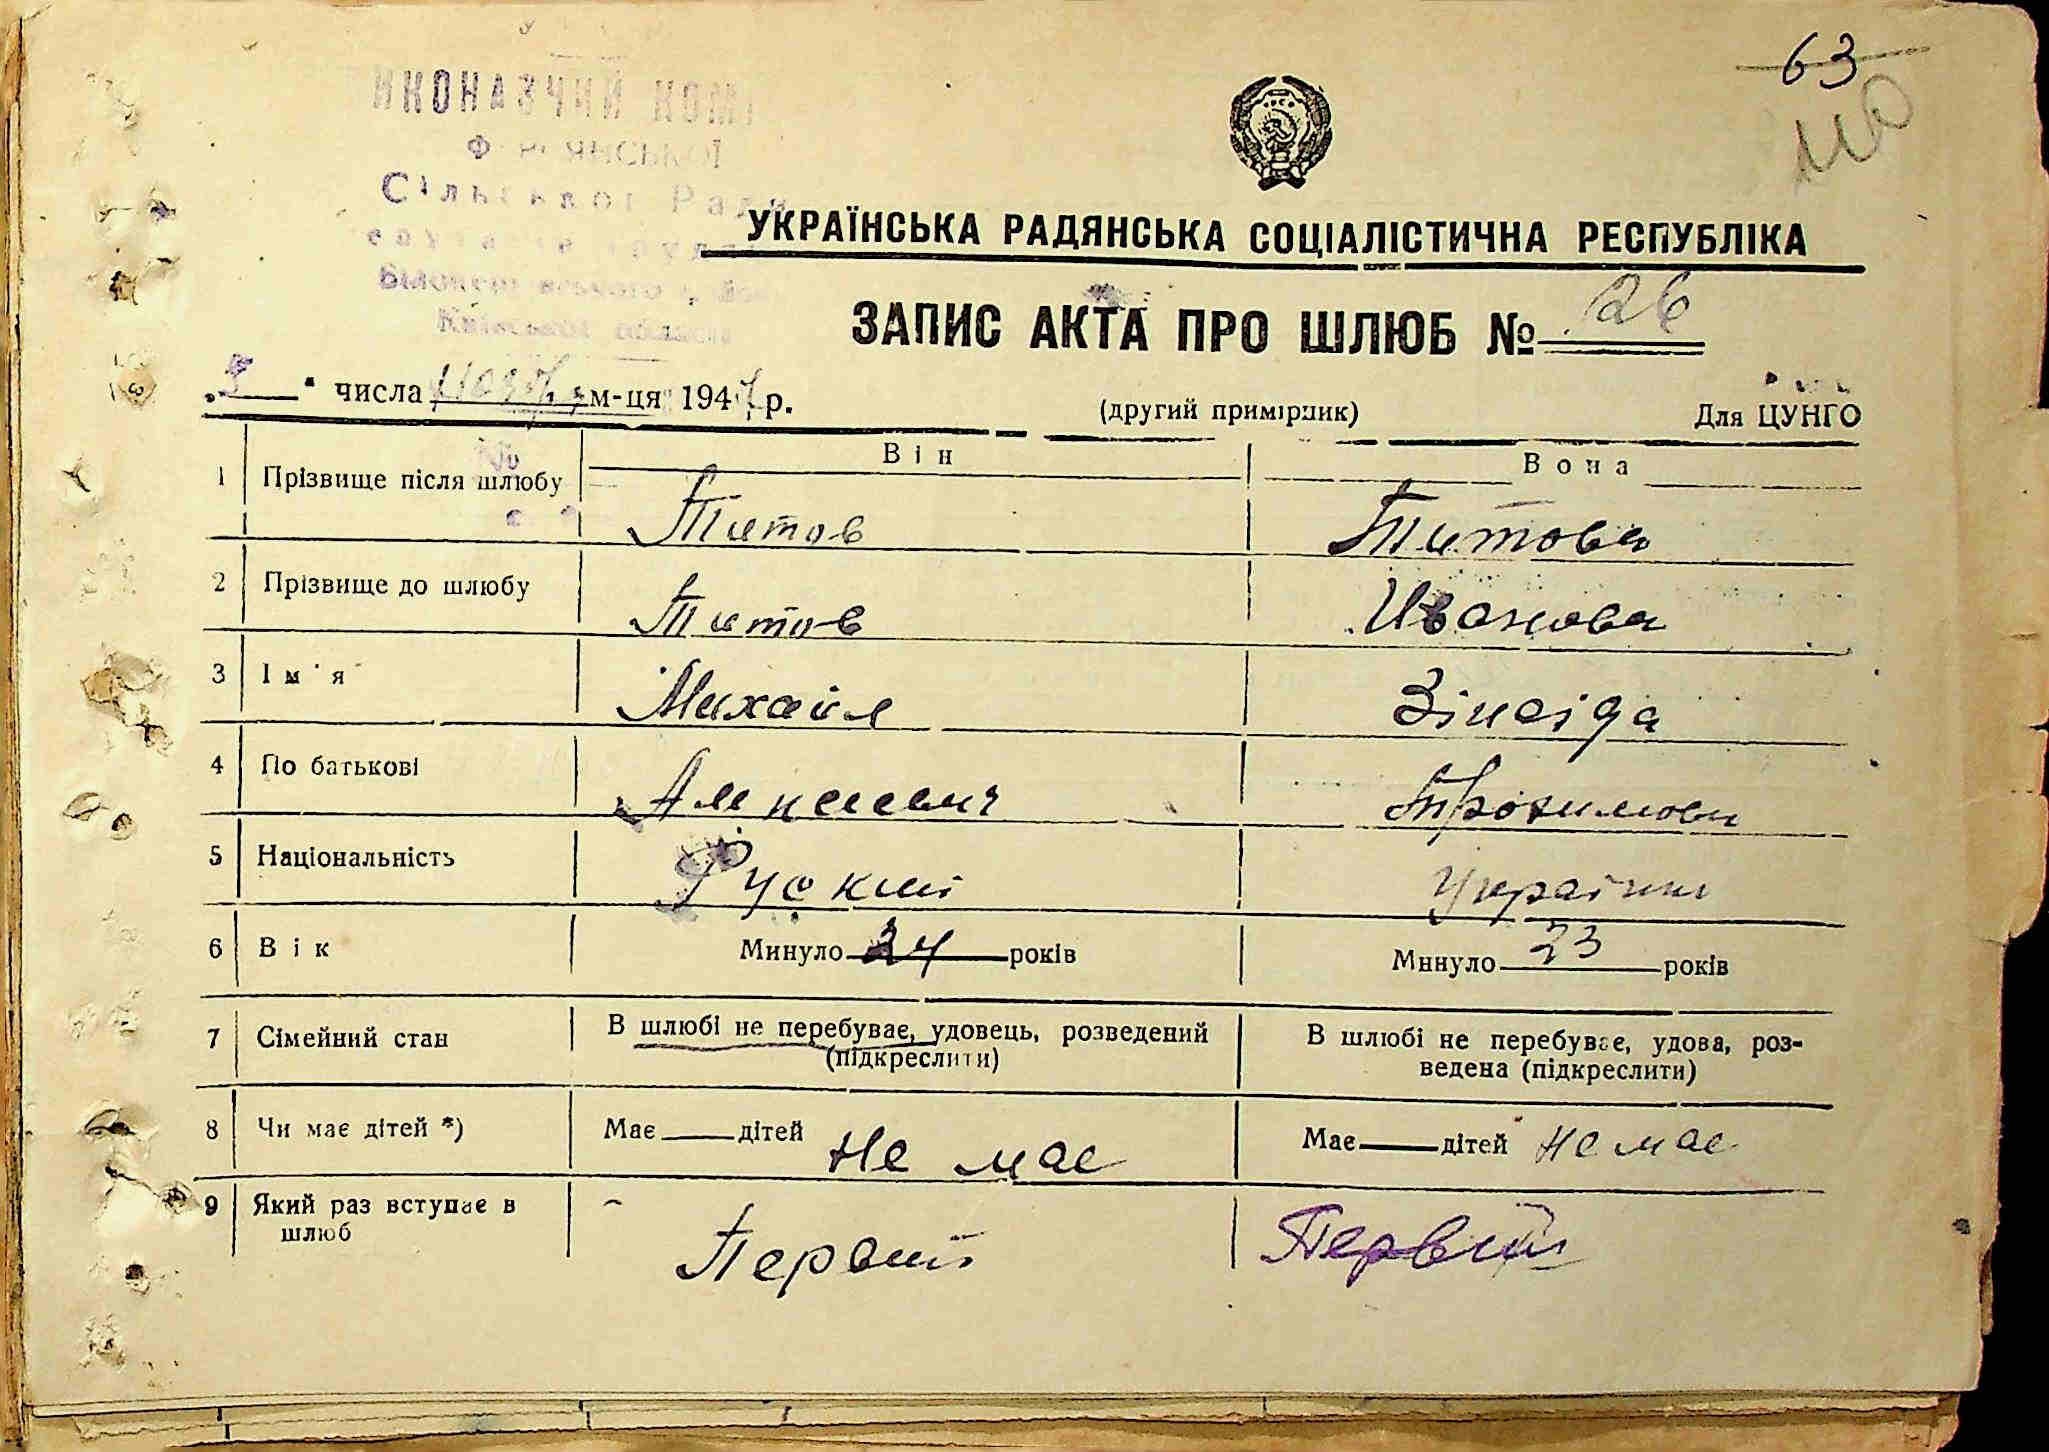 63
110
ИКОНАВЧИЙ КОМІ
Сільської Ради
Київської області
УКРАЇНСЬКА РАДЯНСЬКА СОЦІАЛІСТИЧНА РЕСПУБЛІКА
ЗАПИС АКТА ПРО ШЛЮБ № 26
" числа м-ця 1947 р.
(другий примірник)
Для ЦУНГО
Він Вона
1 Прізвище після шлюбу Титов Титова
2 Прізвище до шлюбу Титов Иванова
3 Ім'я Михаил Зінаіда
4 По батькові Алексеевич Трохимовн
5 Національність Руский Украінка
6 Вік Минуло 24 років Минуло 23 років
7 Сімейний стан В шлюбі не перебуває, удовець, розведений (підкреслити) В шлюбі не перебуває, удова, роз-
ведена (підкреслити)
8 Чи має дітей *) Має дітей Не має Має дітей Не має
9 Який раз вступає в шлюб Первий Первий